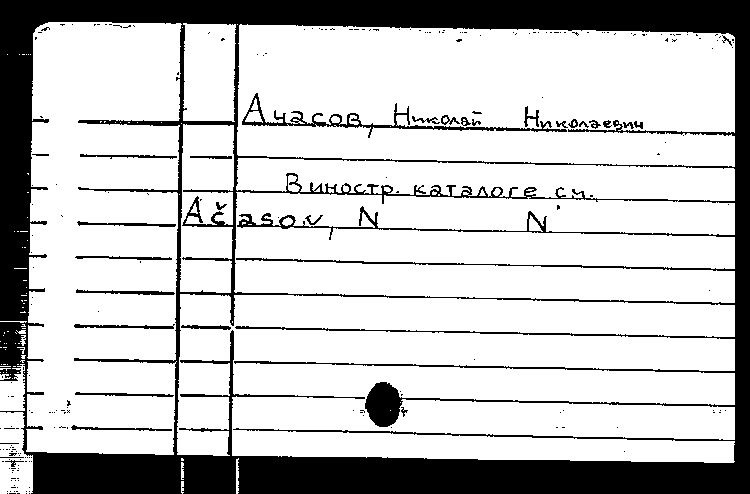 Ачасов, Николай Николаевич
В иностр. каталоге см.
Ačasov, N N